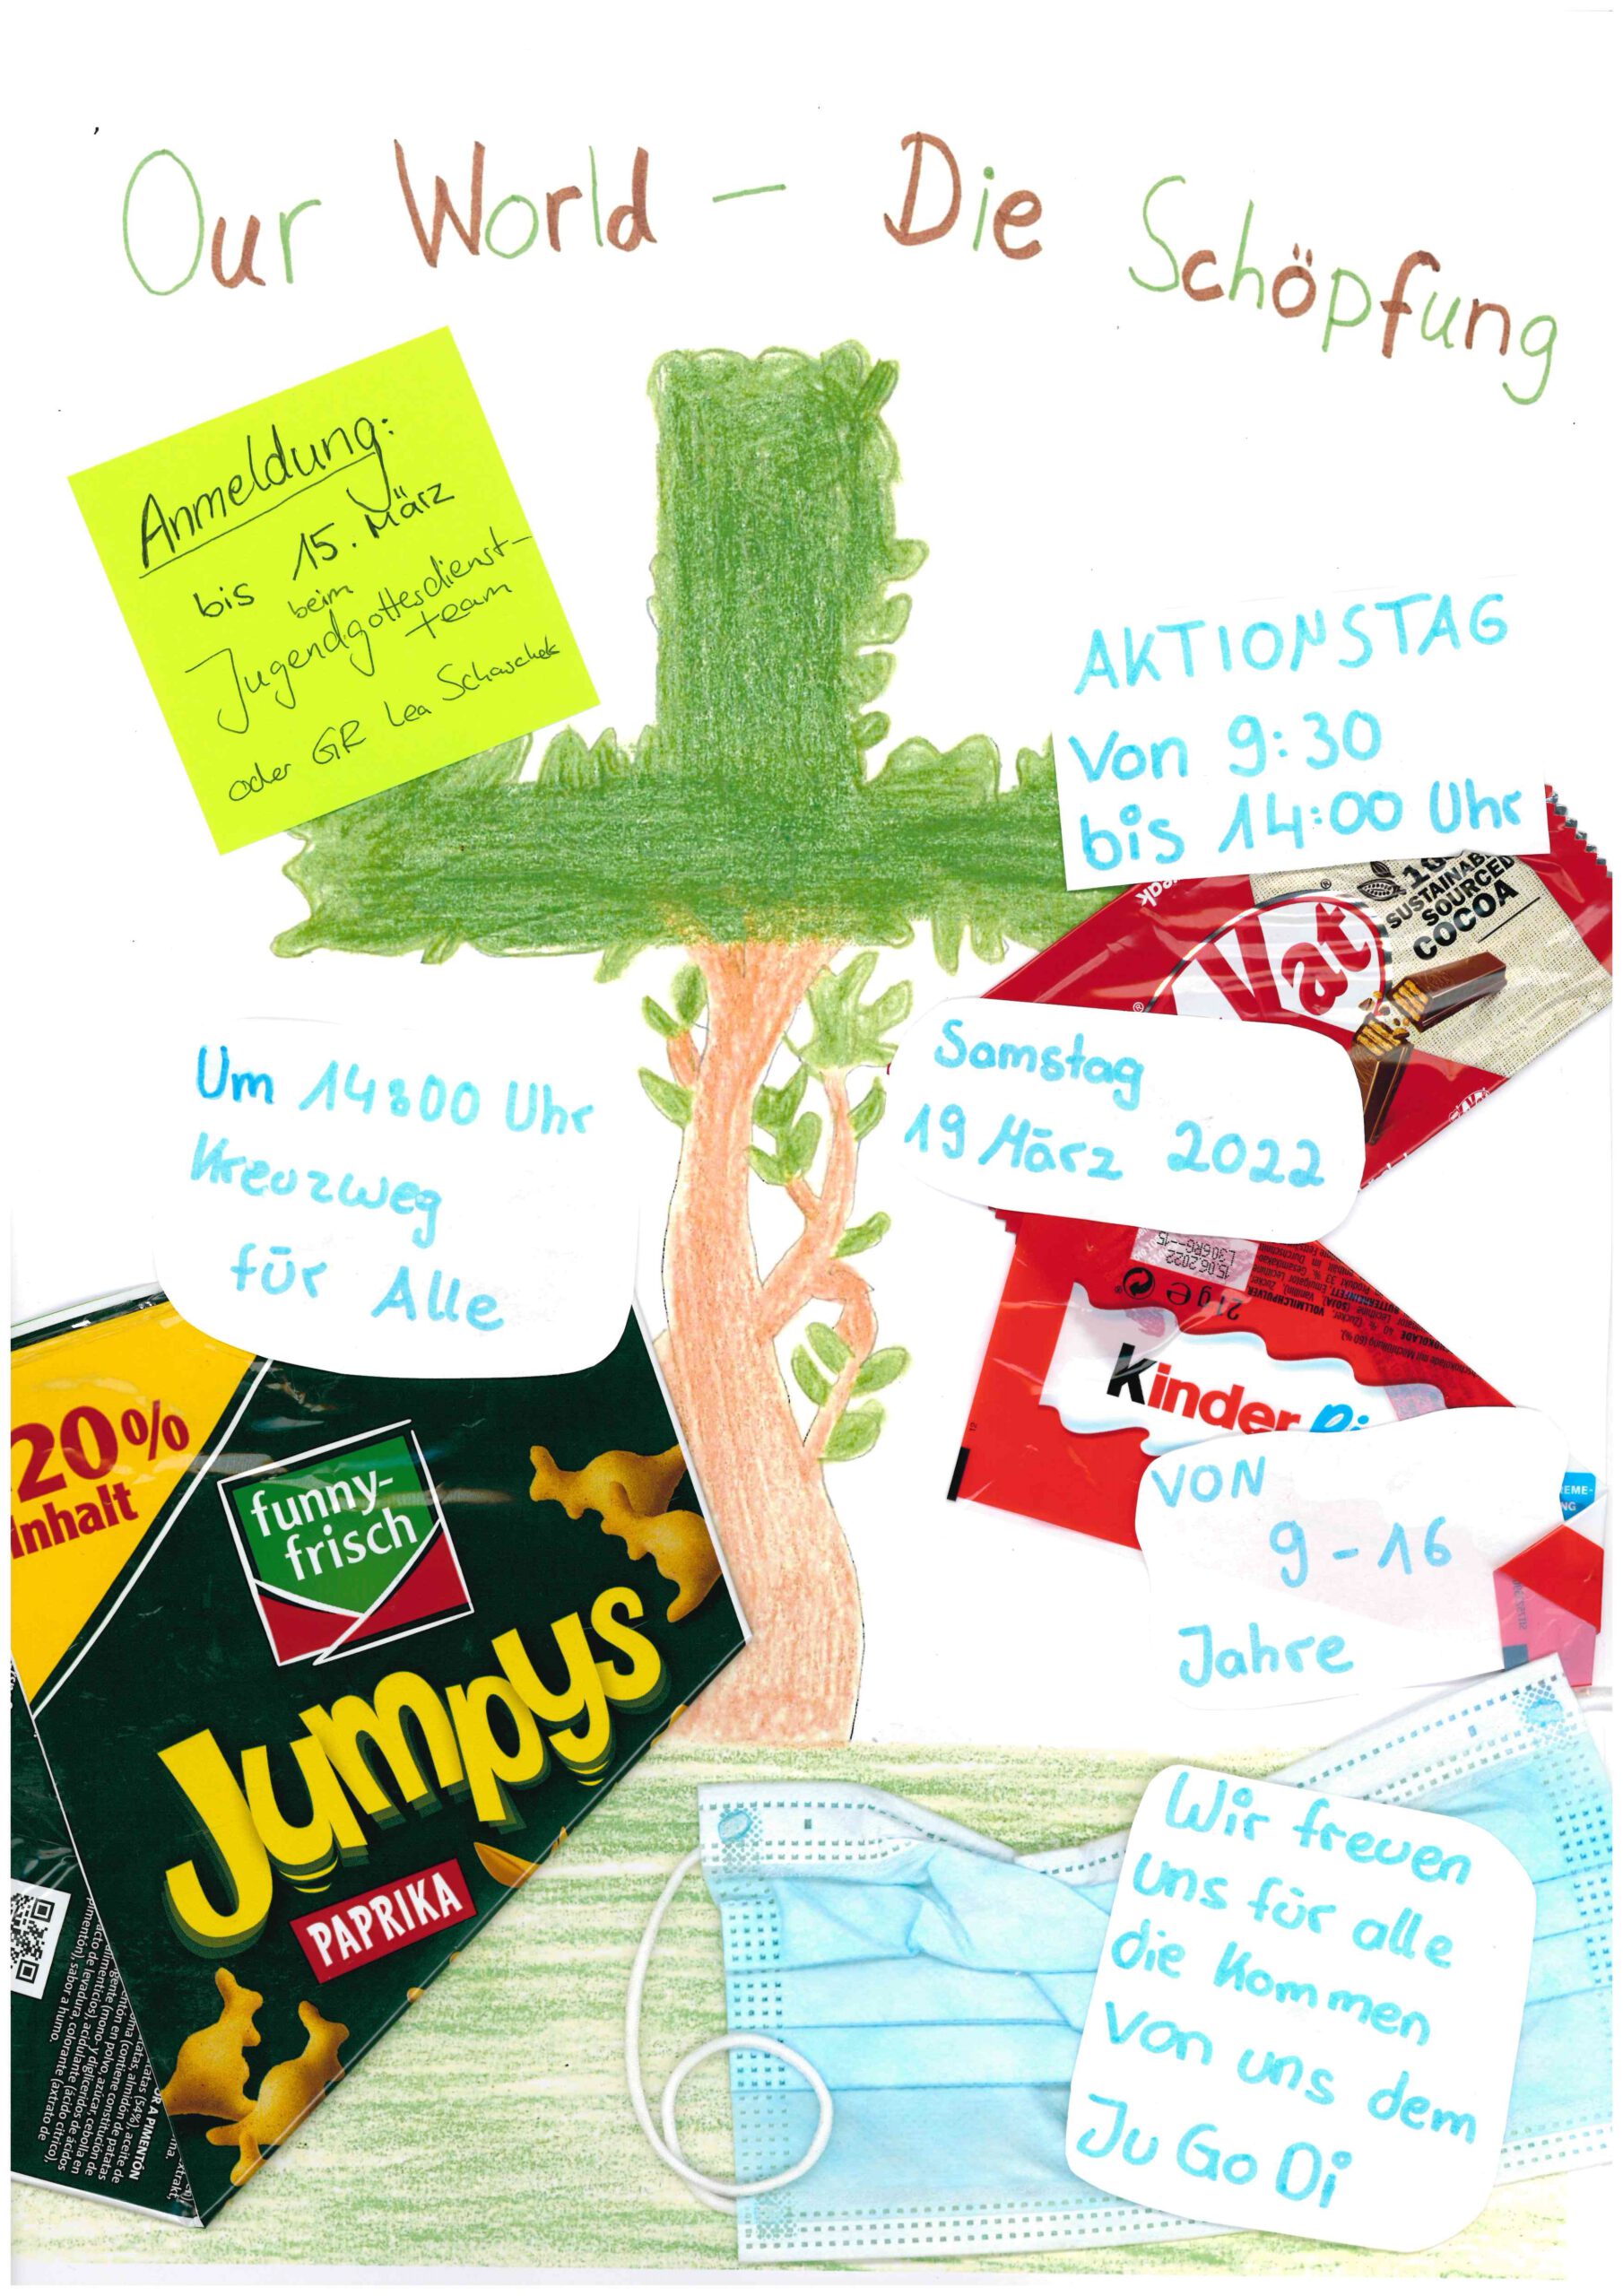 Our World – Die Schöpfung
Anmeldung:
bis 15. März
beim
Jugendgottesdienst-
team
oder GR Lea Schaschek
AKTIONSTAG
Von 9:30
bis 14:00 Uhr
SUSTAINAB
SOURCED
COCOA
Kat
Um 14:00 Uhr
Kreuzweg
für Alle
Samstag
19 März 2022
15.06.2022
L306R6--15
21g e
VOLLMILCHPULVER
Kinder Ri
VON
9 - 16
Jahre
20%
Inhalt
funny-
frisch
Jumpys
PAPRIKA
Wir freuen
uns für alle
die Kommen
von uns dem
Ju Go Di